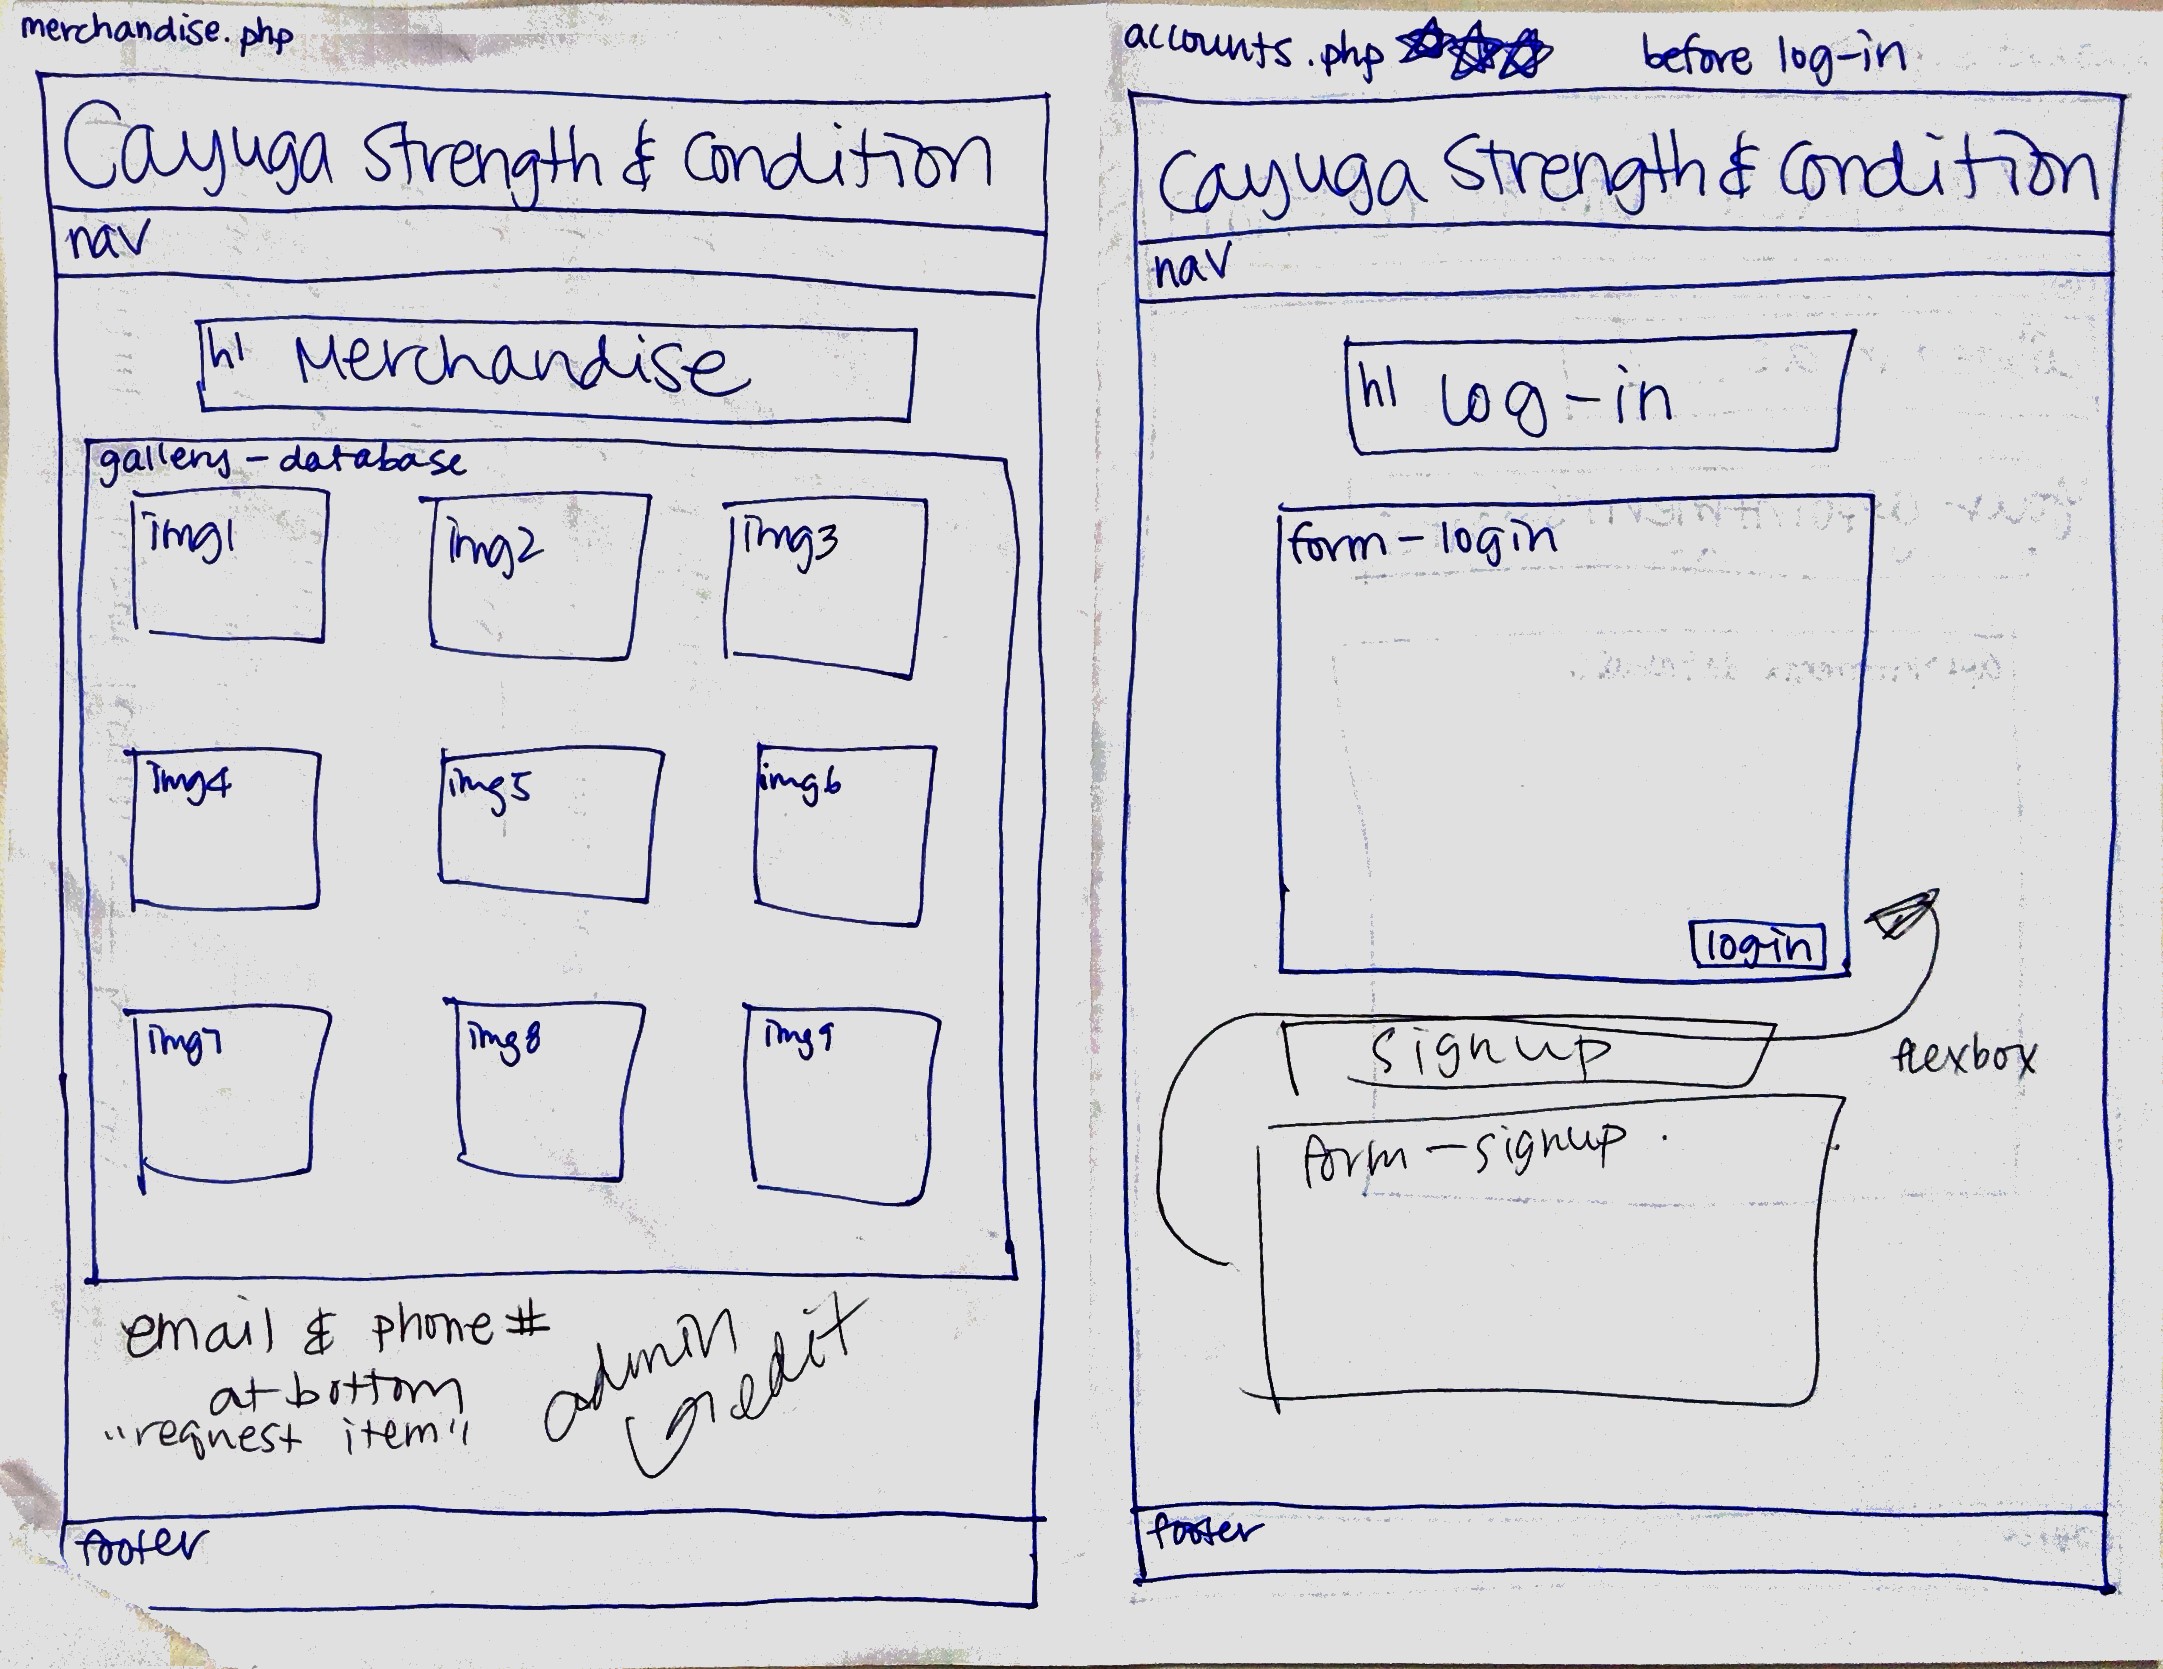 merchandise.php
Cayuga Strength & Condition
nav
h1 Merchandise
gallery - database
img1 img2 img3
img4 img5 img6
img7 img8 img9
email & phone #
at bottom
"request item"
admin
edit
footer
accounts.php before log-in
Cayuga Strength & Condition
nav
h1 Log-in
form - login
login
signup
flexbox
form - signup
footer